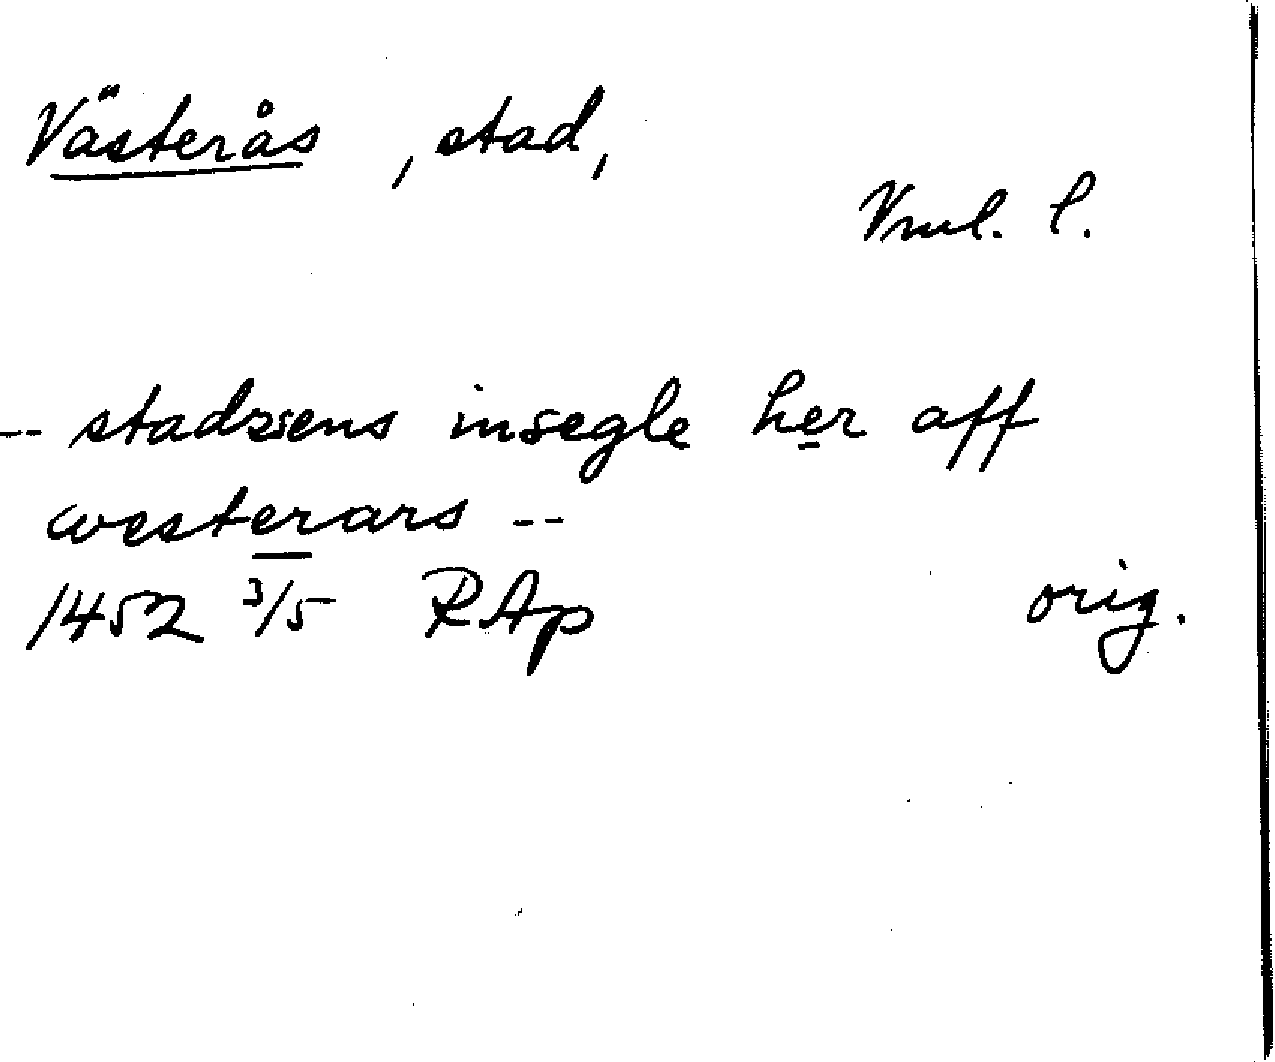 Västerås , stad,
Vml. l.
-- stadzsens insegle her aff
westerars --
1452 3/5 RAp orig.